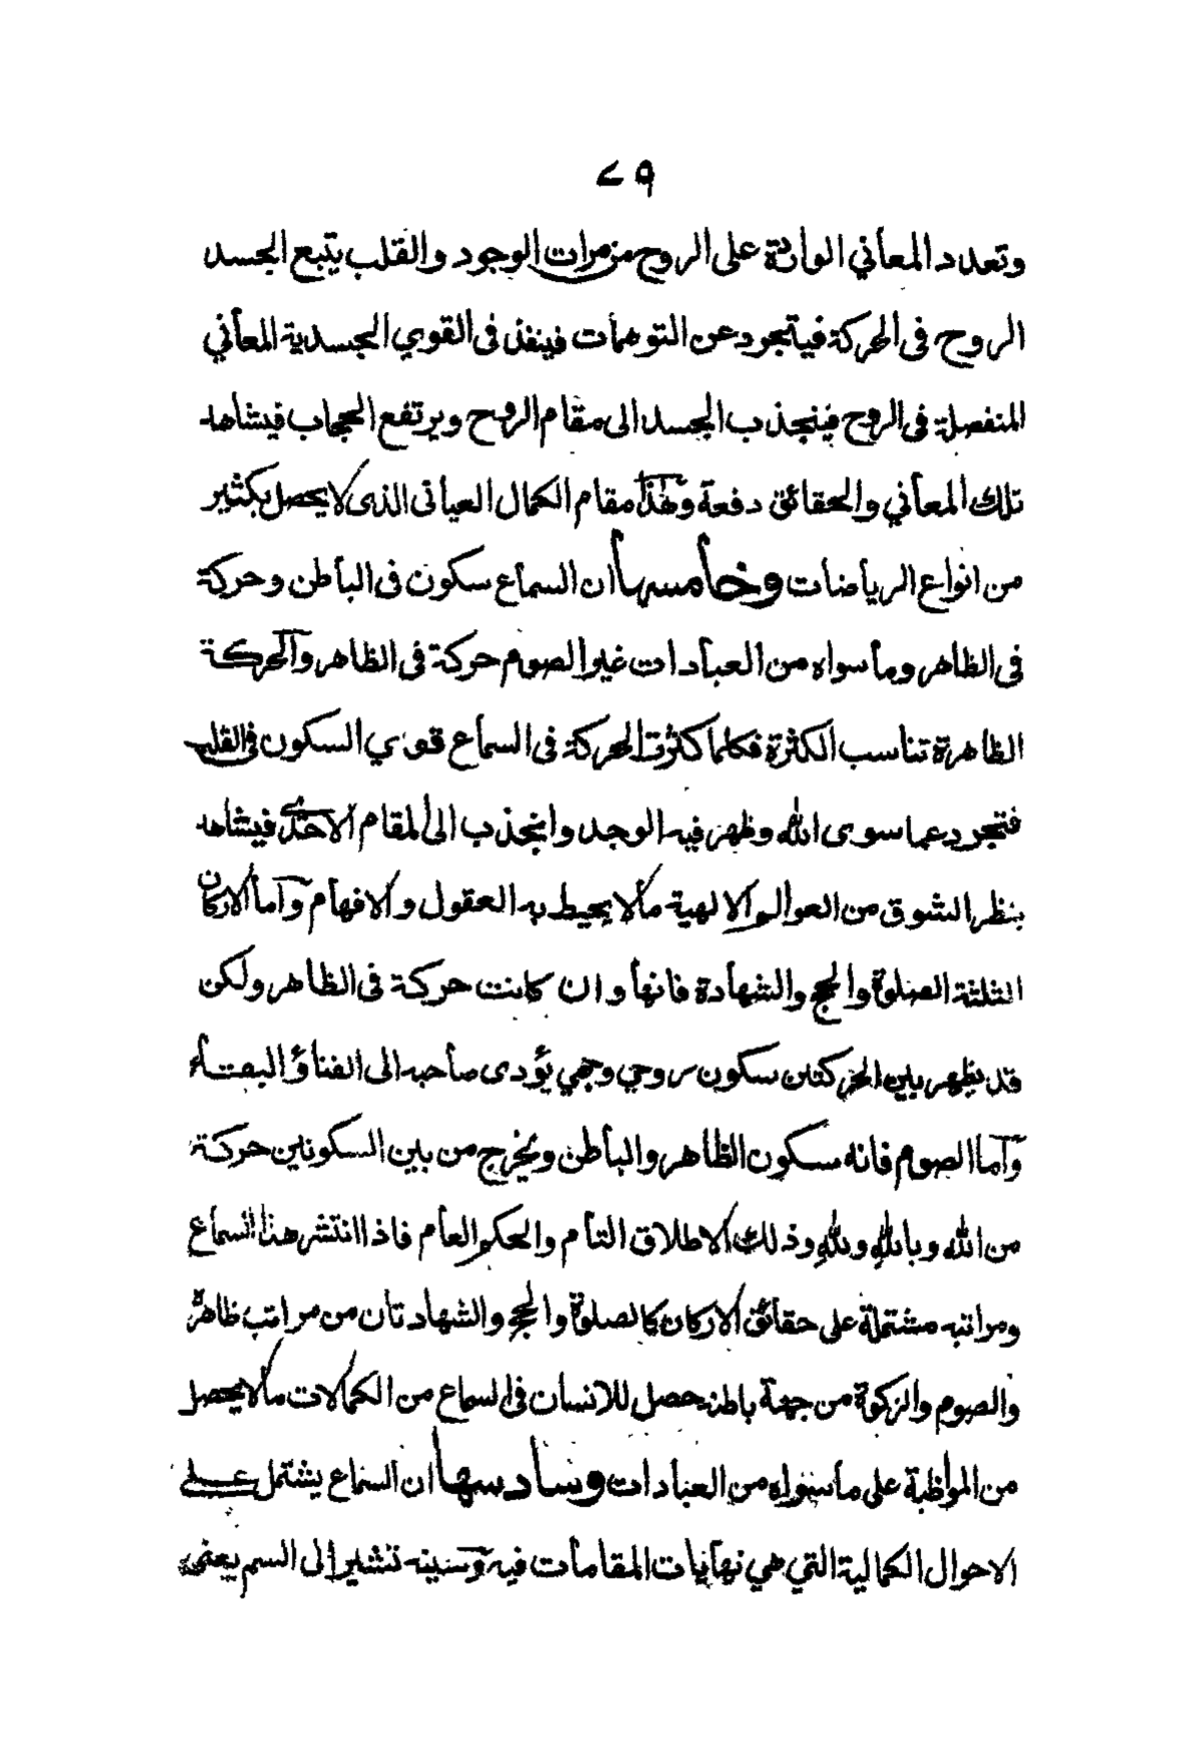 ٧٩
وتعدد المعاني الواردة على الروح من مرات الوجود والقلب يتبع الجسد
الروح فى الحركة فيتجرد عن التوهمات فينفذ فى القوي الجسدية المعاني
المنفصلة فى الروح فينجذب الجسد الى مقام الروح ويرتفع الحجاب فيشاهد
تلك المعاني والحقائق دفعة وهذا مقام الكمال العيانى الذى لا يحصل بكثير
من انواع الرياضات وخامسها ان السماع سكون فى الباطن وحركة
فى الظاهر وما سواه من العبادات غير الصوم حركة فى الظاهر والحركة
الظاهرة تناسب الكثرة فكلما كثرت الحركة فى السماع قوي السكون فى القلب
فتجرد عما سوى الله وظهر فيه الوجد وانجذب الى المقام الاحدى فيشاهد
بنظر الشوق من العوالم الالهية ما لا يحيط به العقول والافهام واما الاركان
الثلثة الصلوة والحج والشهادة فانها وان كانت حركة فى الظاهر ولكن
قد يظهر بين الحركتين سكون روحي وجهي يؤدى صاحبه الى الفناء والبقاء
واما الصوم فانه سكون الظاهر والباطن ويخرج من بين السكونين حركة
من الله وبالله ولله وذلك الاطلاق التام والحكم العام فاذا انتشر هذا السماع
ومراتبه مشتملة على حقائق الاركان كالصلوة والحج والشهادتان من مراتب ظاهره
والصوم والزكوة من جهة باطنه حصل للانسان فى السماع من الكمالات ما لا يحصل
من المواظبة على ما سواه من العبادات وسادسها ان السماع يشتمل على
الاحوال الكمالية التي هي نهايات المقامات فيه وسينه تشير الى السم يعنى